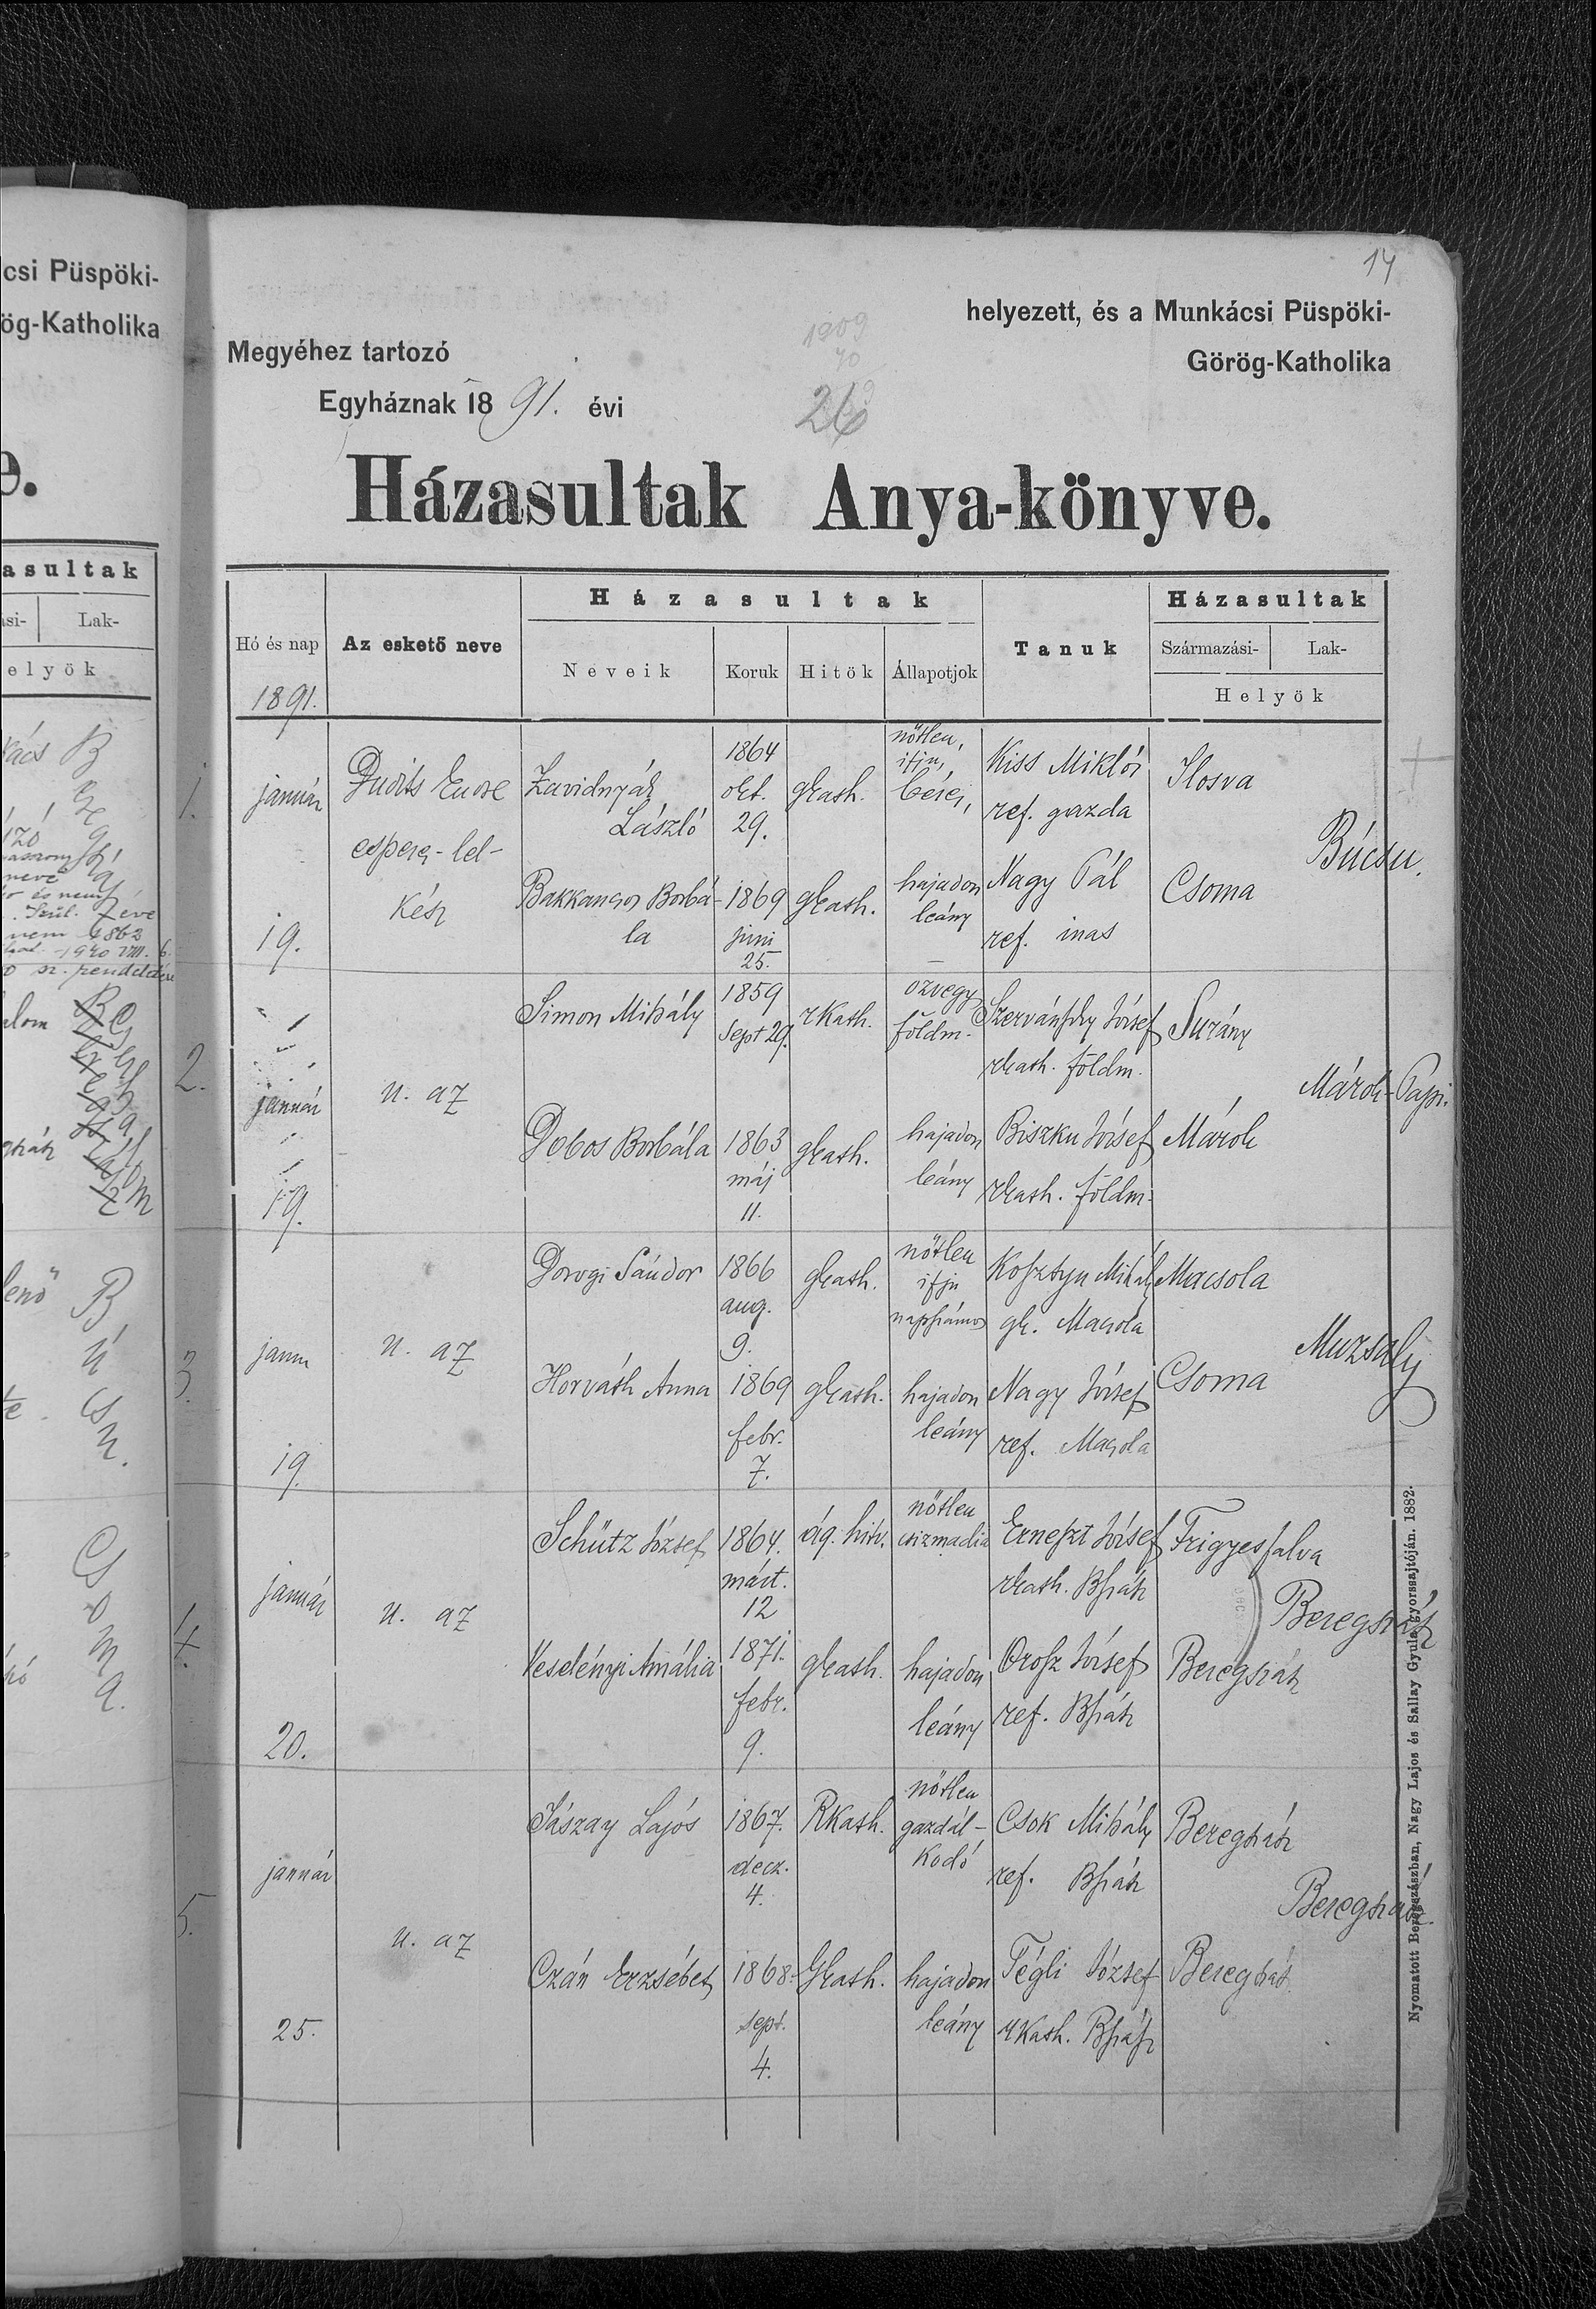 14
helyezett, és a Munkácsi Püspöki-
Megyéhez tartozó
Görög-Katholika
1909
26
Egyháznak 1891. évi
Házasultak Anya-könyve.
Hó és nap
1891.
Az eskető neve
Házasultak
Neveik
Koruk
Hitök
Állapotjok
Tanuk
Házasultak
Származási-
Lak-
Helyök
1.
január
19.
Dudits Endre
esperes-lel-
kész
Zavidnyák
László
1864
okt.
29.
gkath.
nőtlen,
ifju,
béres,
Kiss Miklós
ref. gazda
Ilosva
Búcsu.
Borbá-
la
1869
juni
25.
gkath.
hajadon
leány
Nagy Pál
ref. inas
Csoma
2.
január
19.
u. az
Simon Mihály
1859
Sept 29.
rkath.
özvegy
földm.
József
rkath. földm.
Surány
Márok-Papi.
Dobos Borbála
1863
máj
11.
gkath.
hajadon
leány
Biszku József
rkath. földm.
Márok
3.
janu
19.
u. az
Dorogi Sándor
1866
aug.
9.
gkath.
nőtlen
ifju
napszámos
Kosztyu Mihály
gk. Macsola
Macsola
Muzsaly
Horváth Anna
1869
febr.
7.
gkath.
hajadon
leány
Nagy József
ref. Macsola
Csoma
4.
január
20.
u. az
Schütz József
1864.
márt.
12
ág. hitv.
nőtlen
csizmadia
Erneszt József
rkath. Bszász
Frigyesfalva
Beregszász
Veselényi Amália
1871.
febr.
9.
gkath.
hajadon
leány
Orosz József
ref. Bszász
Beregszász
5.
január
25.
u. az
Jászay Lajós
1867.
decz.
4.
Rkath.
nőtlen
gazdál-
kodó
Csok Mihály
ref. Bszász
Beregszász
Beregszász.
Czán Erzsébet
1868.
sept.
4.
Gkath.
hajadon
leány
Tégli József
rkath. Bszász
Beregszász
Nyomatott Beregszászban, Nagy Lajos és Sallay Gyula gyorssajtóján. 1882.
csi Püspöki-
ög-Katholika
e.
asultak
Lak-
elyök